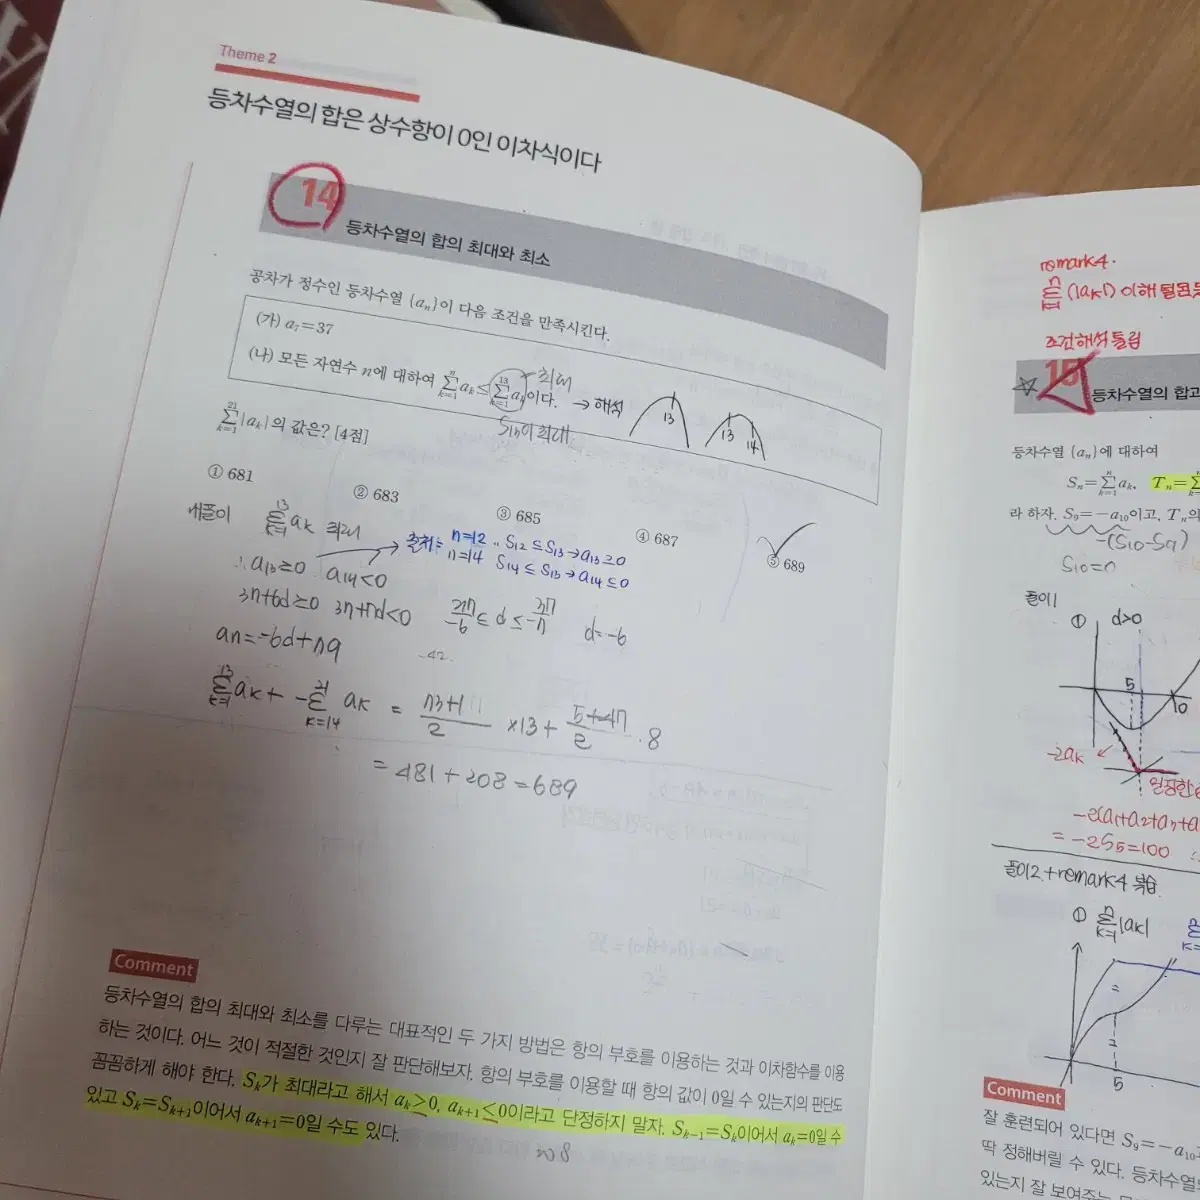 Theme 2
등차수열의 합은 상수항이 0인 이차식이다
14
등차수열의 합의 최대와 최소
공차가 정수인 등차수열 {aₙ}이 다음 조건을 만족시킨다.
(가) a₇=37
(나) 모든 자연수 n에 대하여 ∑_{k=1}^{n} aₖ ≤ ∑_{k=1}^{13} aₖ이다. → 해석
최대
S₁₃이 최대
13
13 14
∑_{k=1}^{21} |aₖ|의 값은? [4점]
① 681
② 683
③ 685
④ 687
⑤ 689
내풀이 ∑_{k=1}^{13} aₖ 최대
n=12 .. S₁₂ ≤ S₁₃ → a₁₃ ≥ 0
n=14 S₁₄ ≤ S₁₃ → a₁₄ ≤ 0
∴ a₁₃≥0 a₁₄<0
37+6d≥0 37+7d<0 37/-6 ≤ d ≤ -37/7 d=-6
-42
∑_{k=1}^{13} aₖ + -∑_{k=14}^{21} aₖ = (73+1)/2 ×13 + (5+47)/2 · 8
= 481+208=689
Comment
등차수열의 합의 최대와 최소를 다루는 대표적인 두 가지 방법은 항의 부호를 이용하는 것과 이차함수를 이용
하는 것이다. 어느 것이 적절한 것인지 잘 판단해보자. 항의 부호를 이용할 때 항의 값이 0일 수 있는지의 판단도
꼼꼼하게 해야 한다. Sₖ가 최대라고 해서 aₖ>0, aₖ₊₁≤0이라고 단정하지 말자. Sₖ₋₁=Sₖ이어서 aₖ=0일 수
있고 Sₖ=Sₖ₊₁이어서 aₖ₊₁=0일 수도 있다.
208
remark4.
∑_{k=1}^{n} (|aₖ|) 이해
조건해석 틀림
15
등차수열의 합과
등차수열 {aₙ}에 대하여
Sₙ=∑_{k=1}^{n} aₖ, Tₙ=
라 하자. S₉=-a₁₀이고, Tₙ의
-(S₁₀-S₉)
S₁₀=0
풀이1
① d>0
5
10
-2aₖ
일정한
-2(a₁+a₂+a₃+a
= -2S₅=100
풀이2+remark4 복습.
① ∑_{k=1}^{n} |aₖ|
5
Comment
잘 훈련되어 있다면 S₉=-a₁₀
딱 정해버릴 수 있다. 등차수열
있는지 잘 보여주는